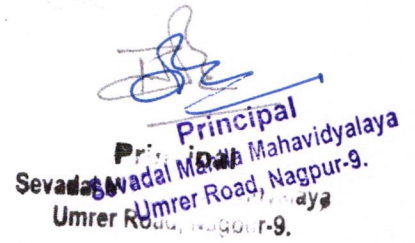 Principal
Sevadal Mahila Mahavidyalaya
Umrer Road, Nagpur-9.
Principal
Sevadal
Umrer Road, Nagpur-9.